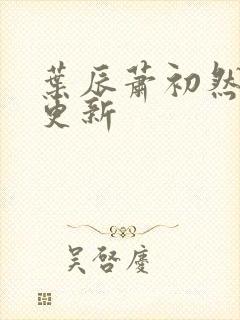 葉辰蕭初然
更新
吴啓慶